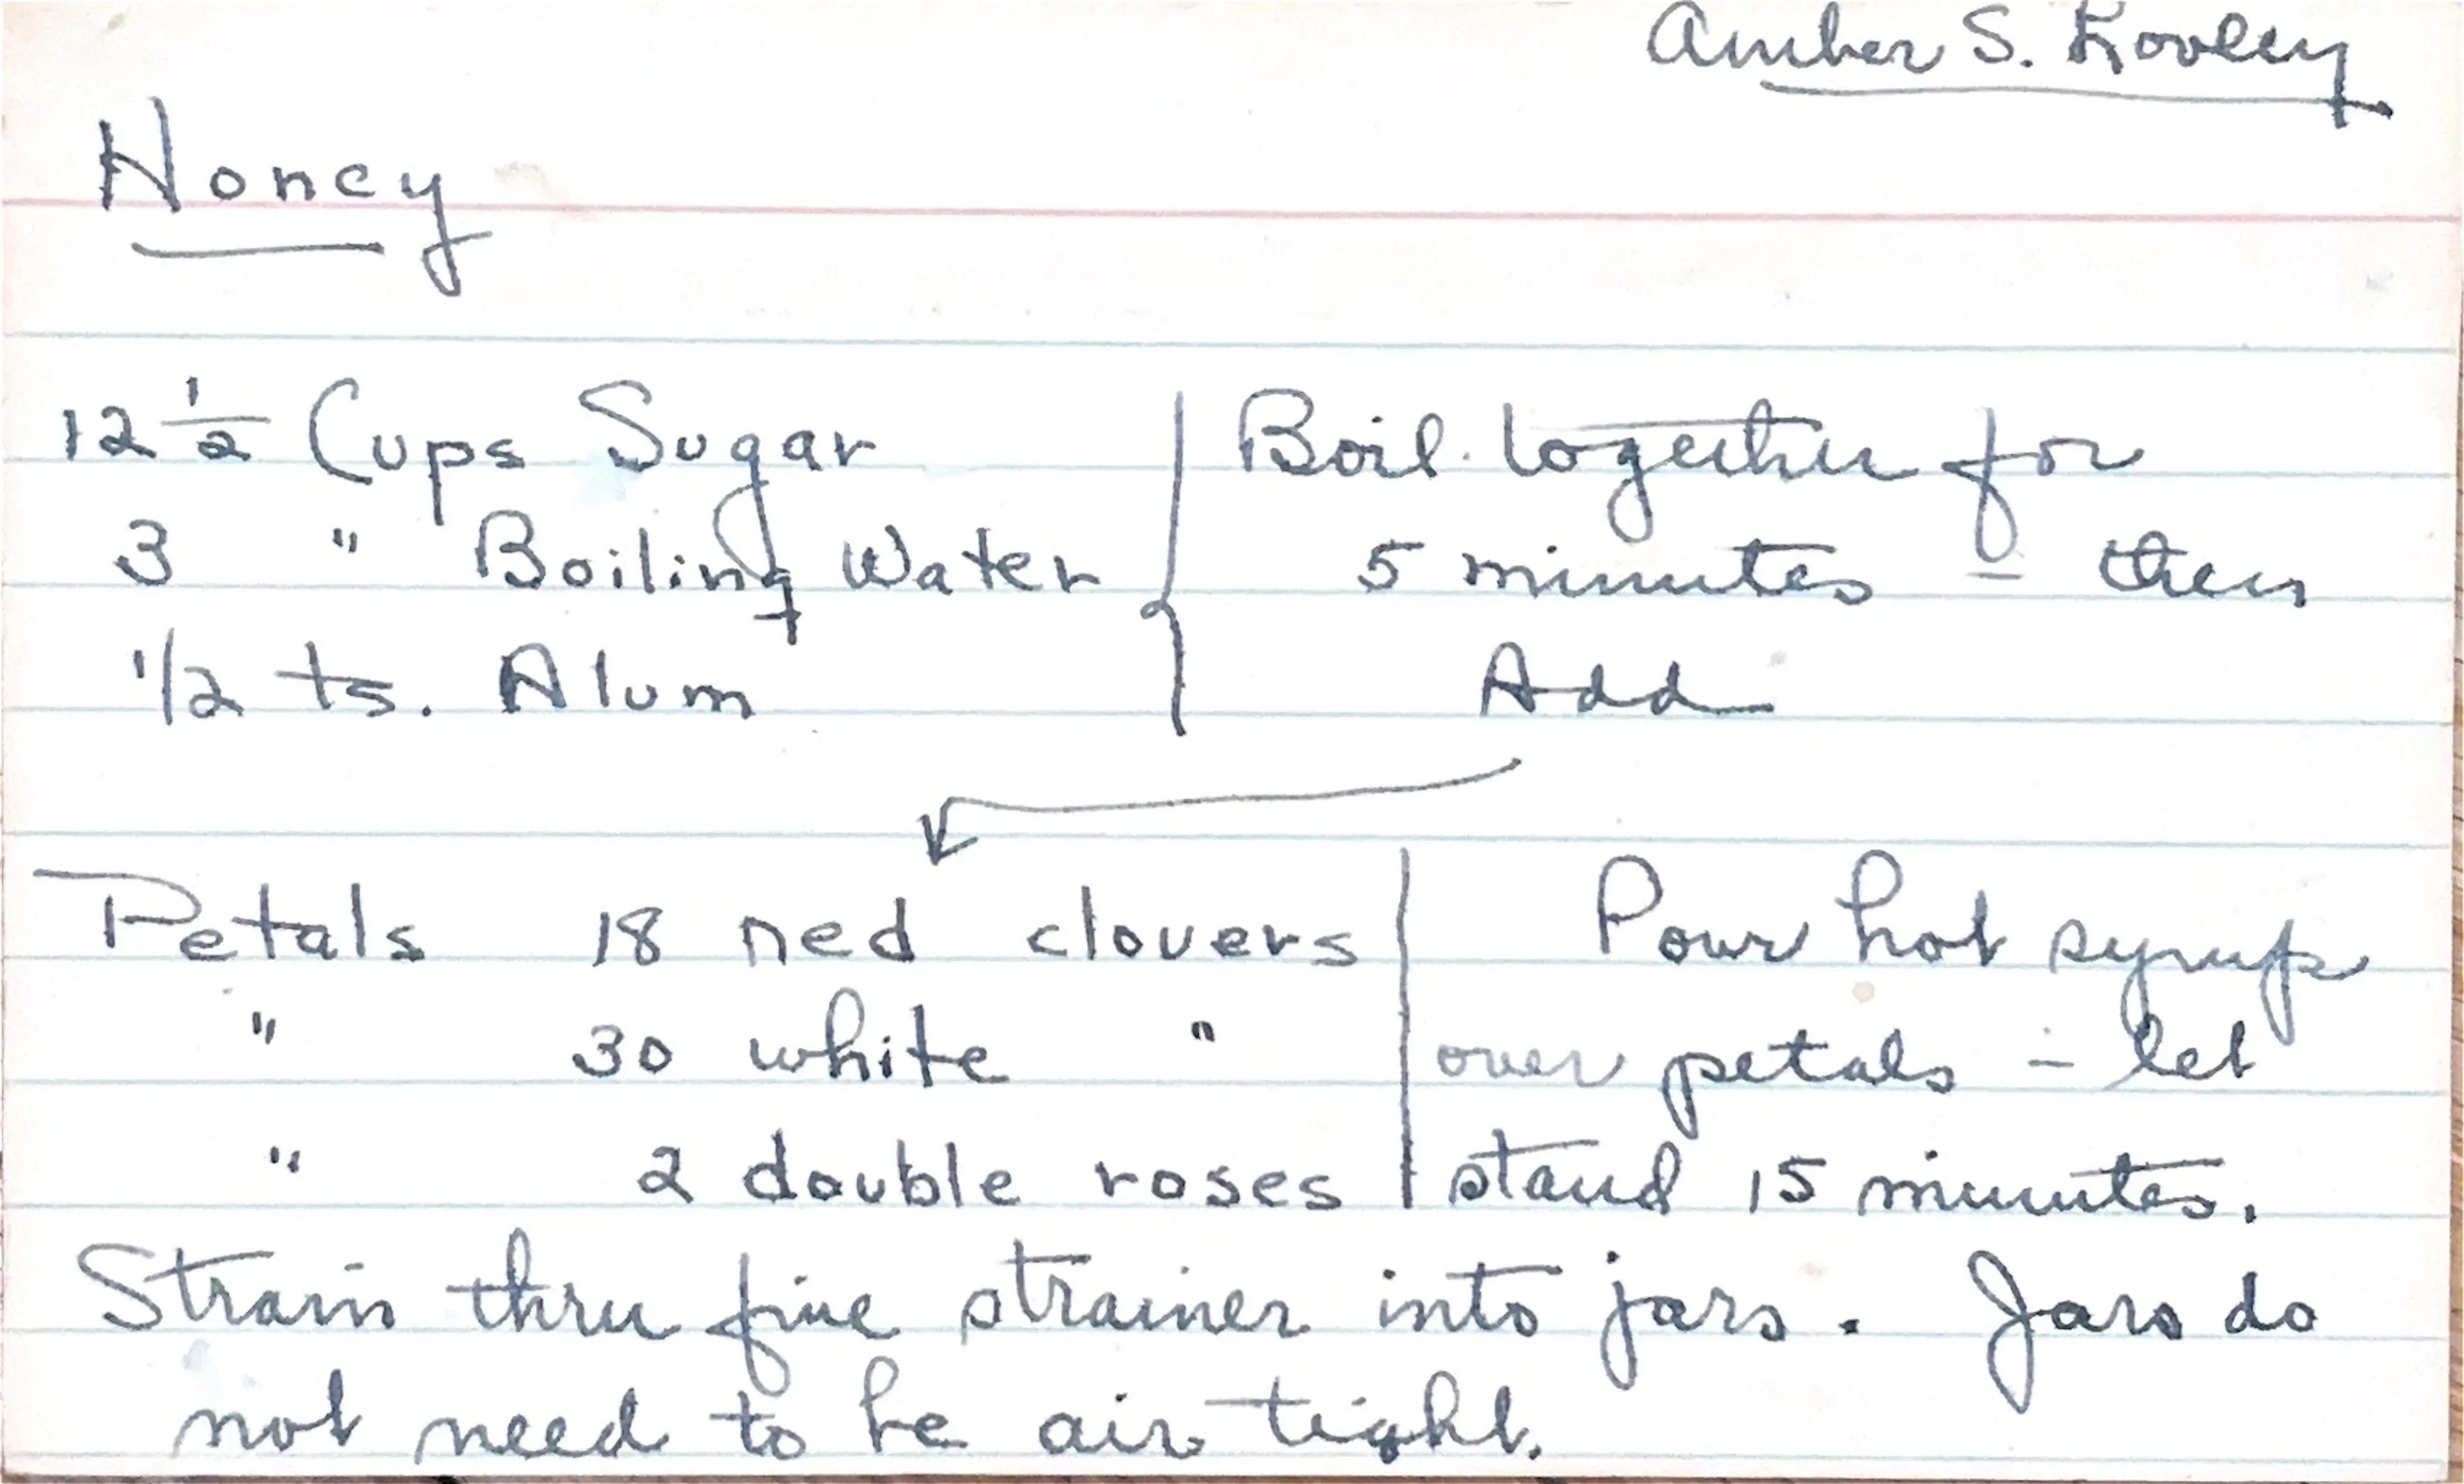 Amber S.
Honey
12 1/2 Cups Sugar
3 " Boiling Water
1/2 ts. Alum
Boil together for
5 minutes - then
Add
Petals 18 red clovers
" 30 white "
" 2 double roses
Pour hot syrup
over petals - let
stand 15 minutes.
Strain thru fine strainer into jars. Jars do
not need to be air tight.